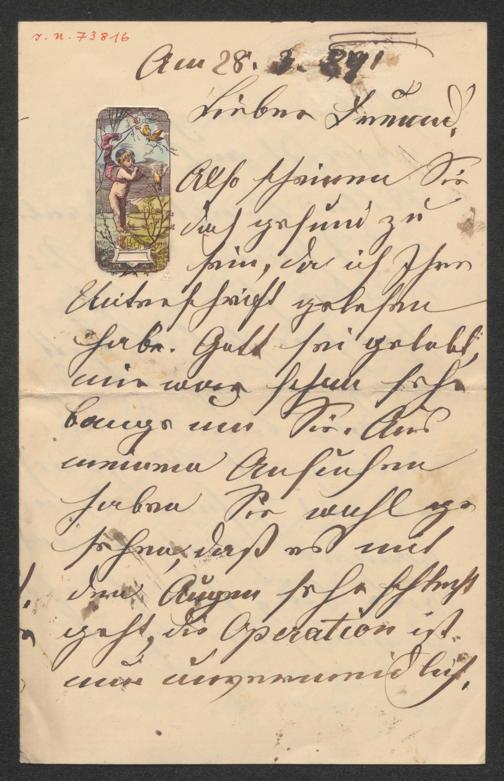 J. N. 73816
Am 28. 3. 891
Lieber Freund,
Also scheinen Sie
doch gesund zu
sein, da ich Ihre
Unterschrift gelesen
habe. Gott sei gelobt,
mir war schon sehr
bange um Sie. Aus
meinem Ansuchen
haben Sie wohl ge
sehen, daß es mit
den Augen sehr schlecht
geht, die Operation ist
nun unvermeidlich.